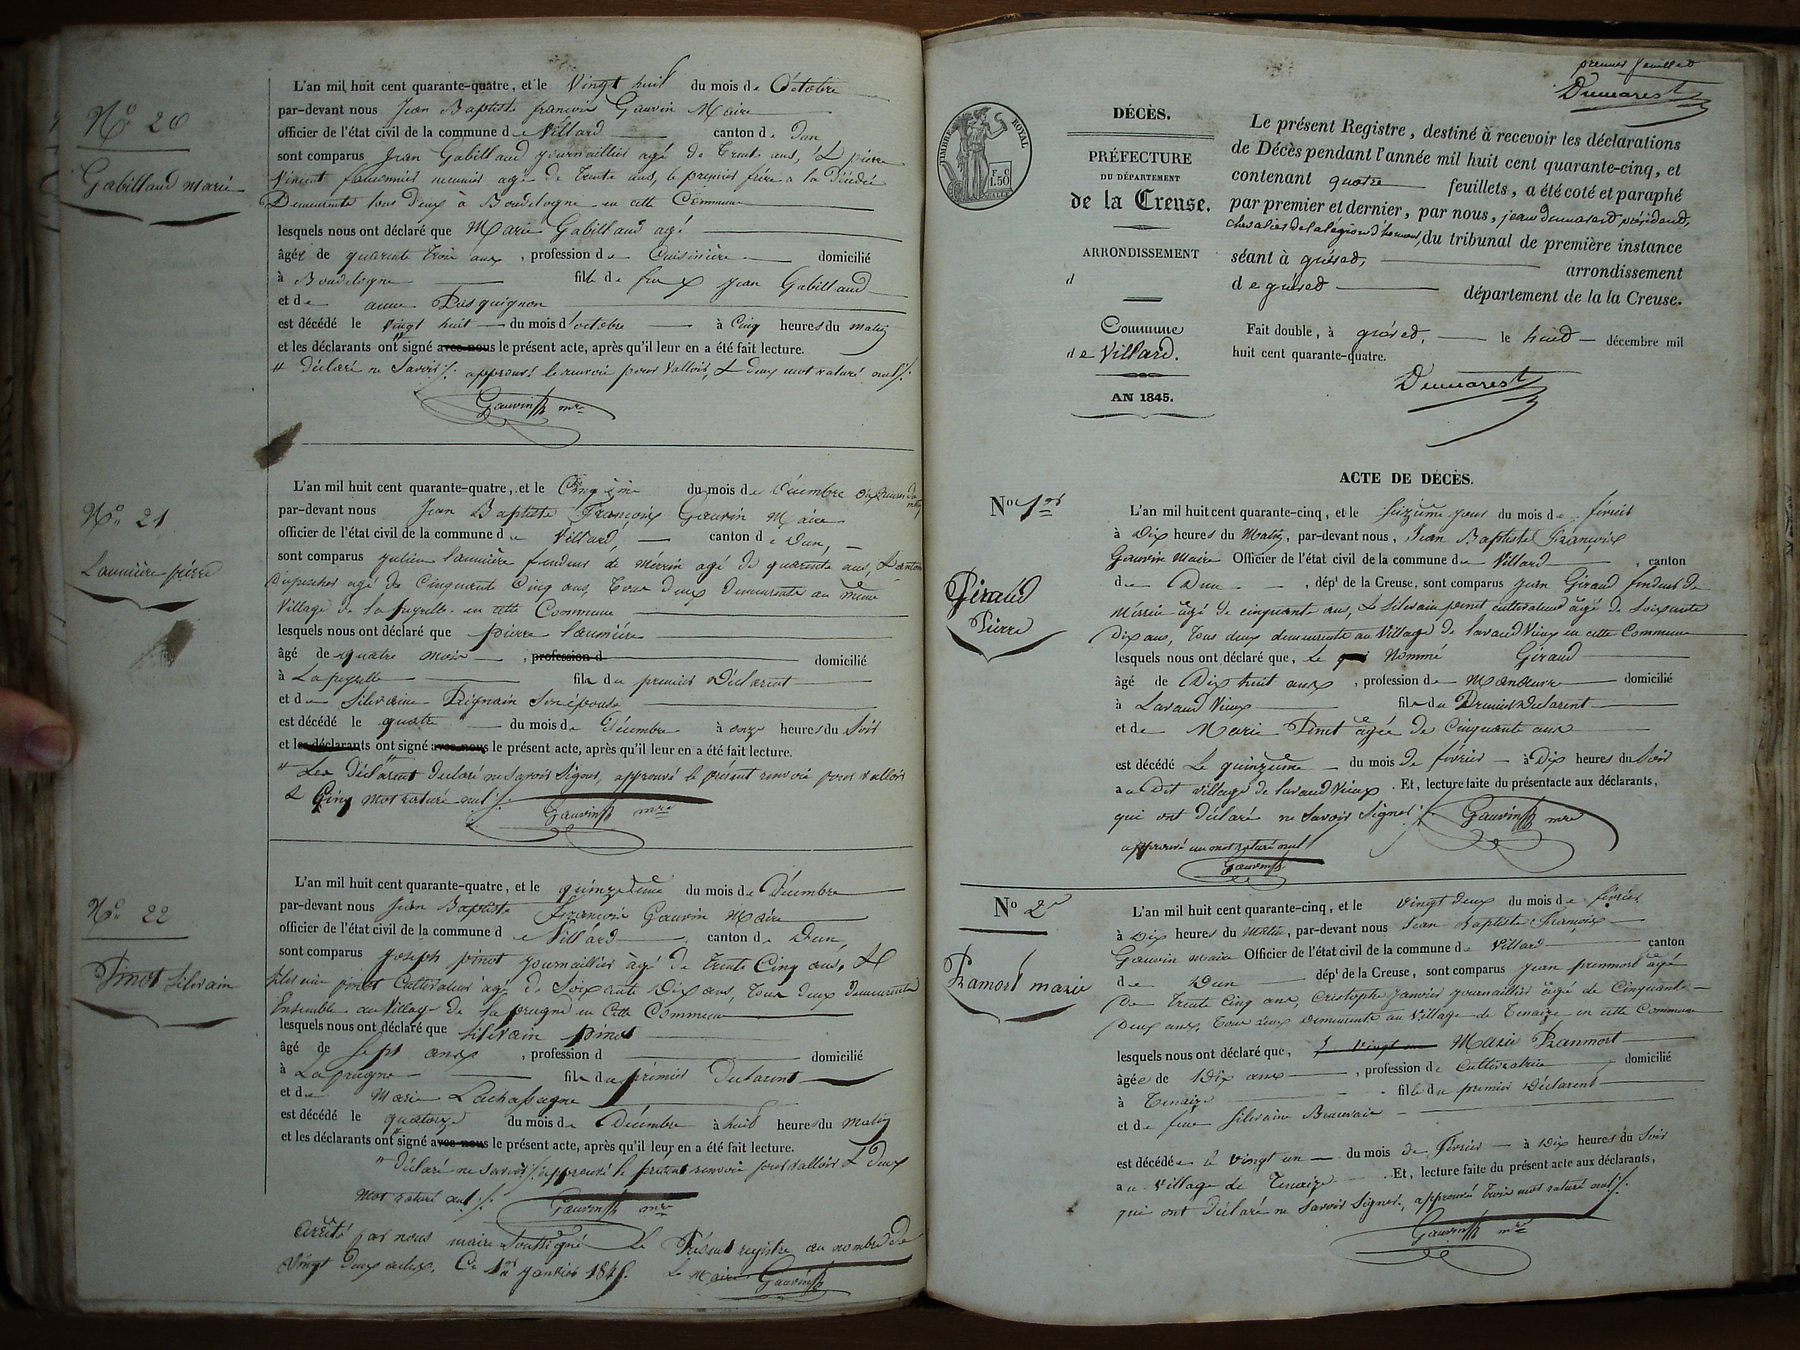 N° 20
Gabilland marie
L'an mil huit cent quarante-quatre, et le Vingt huit du mois de Octobre
par-devant nous Jean Baptiste françois Gauvin Maire
officier de l'état civil de la commune de Villard canton de Dun
sont comparus Jean Gabilland journaillier agé de Trente ans, & pierre
Vincent meunier agé de Trente ans, le premier frère a la Décédée
Demeurente tous deux à Boudelogne en cette Commune
lesquels nous ont déclaré que Marie Gabilland agé
âgée de quarente trois ans, profession de Cuisinière domicilié
à Boudelogne fille de feu jean Gabilland
et de anne Pasquignon
est décédé le Vingt huit du mois d'octobre à Cinq heures du matin
et les déclarants ont signé avec nous le présent acte, après qu'il leur en a été fait lecture.
" déclaré ne Savoir ./. approuvé le renvoie pour valloir, & deux mot raturé nul ./.
Gauvin mre
N° 21
Laumière pierre
L'an mil huit cent quarante-quatre, et le Cinq du mois de Décembre dix heures du matin
par-devant nous Jean Baptiste François Gauvin Maire
officier de l'état civil de la commune de Villard, canton de Dun,
sont comparus julien laumière fendeur de mérrin agé de quarente ans,
agé de Cinquente Cinq ans, Tous deux Demeurente au même
Village de la peyrelle en cette Commune
lesquels nous ont déclaré que pierre laumière
âgé de quatre mois, profession d domicilié
à La peyrelle fils du premier Déclarent
et de Silvaine Peignain Son épouse
est décédé le quatre du mois de Décembre à onze heures du Soir
et les déclarants ont signé avec nous le présent acte, après qu'il leur en a été fait lecture.
" Les déclarent declaré ne Savoir Signer, approuvé le présent renvoie pour valloir
& Cinq mot raturé nul ./.
Gauvin mre
N° 22
Pinot Silvain
L'an mil huit cent quarante-quatre, et le quinzieme du mois de Décembre
par-devant nous Jean Baptiste François Gauvin Maire
officier de l'état civil de la commune de Villard canton de Dun
sont comparus joseph pinot journaillier âgé de Trente Cinq ans, &
Silvain pinot Cultivateur agé de Soixante Dix ans, Tous deux Demeurente
Ensemble au Village de la prugne en Cette Commune
lesquels nous ont déclaré que Silvain pinot
âgé de Sept ans, profession d domicilié
à La prugne fils du premier Declarent
et de Marie Lachassagne
est décédé le quatorze du mois de Décembre à huit heures du matin
et les déclarants ont signé avec nous le présent acte, après qu'il leur en a été fait lecture.
" déclaré ne Savoir ./. approuvé le présent renvoie pour valloir & deux
mot raturé nul ./.
Gauvin mre
Arrêté par nous maire Soussigné Le Présent registre au nombre de
Vingt deux actes. Ce 1er janvier 1845. Le Maire Gauvin
premier feuillet
Dumarest
TIMBRE ROYAL
1.50
DÉCÈS.
PRÉFECTURE
DU DÉPARTEMENT
de la Creuse.
ARRONDISSEMENT
d
Commune
de Villard.
AN 1845.
Le présent Registre, destiné à recevoir les déclarations
de Décès pendant l'année mil huit cent quarante-cinq, et
contenant quatre feuillets, a été coté et paraphé
par premier et dernier, par nous, jean dumarest président,
chevalier de la légion d'honneur, du tribunal de première instance
séant à guéret, arrondissement
de guéret département de la la Creuse.
Fait double, à guéret, le huit décembre mil
huit cent quarante-quatre.
Dumarest
ACTE DE DÉCÈS.
N° 1er
Giraud
Pierre
L'an mil huit cent quarante-cinq, et le Seizième jour du mois de février
à Dix heures du Matin, par-devant nous, Jean Baptiste François
Gauvin Maire Officier de l'état civil de la commune de Villard, canton
de Dun, dépt de la Creuse, sont comparus Jean Giraud fendeur de
Mérrin âgé de cinquant ans, & Silvain pinot cultivateur âgé de Soixante
Dix ans, Tous deux demeurente au Village de lavaud Vieux en cette Commune
lesquels nous ont déclaré que, Le Nommé Giraud
âgé de Dix huit ans, profession de Manœuvre domicilié
à Lavaud Vieux fils du Premier Declarent
et de Marie Pinot agée de Cinquante ans
est décédé Le quinzième du mois de février à Dix heures du Soir
au Dit village de lavaud Vieux. Et, lecture faite du présent acte aux déclarants,
qui ont déclaré ne Savoir Signer ./. Gauvin mre
approuvé un mot raturé nul
Gauvin
N° 2e
Pramort marie
L'an mil huit cent quarante-cinq, et le Vingt deux du mois de février
à Dix heures du Matin, par-devant nous Jean Baptiste François
Gauvin maire Officier de l'état civil de la commune de Villard canton
de Dun dépt de la Creuse, sont comparus Jean pranmort âgé
De Trente Cinq ans, Cristophe Janvier journaillier âgé de Cinquante
Deux ans, Tous deux Demeurente au Village de Tenaize en cette Commune
lesquels nous ont déclaré que, Marie Pranmort
âgée de Dix ans, profession de Cultivatrice domicilié
à Tenaize fille du premier Déclarent
et de feue Silvaine Beauvais
est décédée le Vingt un du mois de Février à Dix heures du Soir
au Village de Tenaize. Et, lecture faite du présent acte aux déclarants,
qui ont Déclaré ne Savoir Signer, approuvé Trois mot raturé nul ./.
Gauvin mre